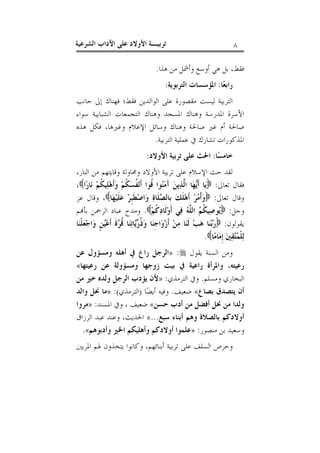 ٨ تربيـــة الأولاد على الآداب الشرعية
فقط، بل هي أوسع وأشمل من هذا.
رابعًا: المؤسسات التربوية:
التربية ليست مقصورة على الوالدين فقط؛ فهناك إلى جانب
الأسرة المدرسة وهناك المسجد وهناك التجمعات الشبابية سواء
صالحة أم غير صالحة وهناك وسائل الإعلام وغيرها، فكل هذه
المذكورات تشارك في عملية التربية.
خامسًا: الحث على تربية الأولاد:
لقد حث الإسلام على تربية الأولاد ومحاولة وقايتهم من النار،
فقال تعالى: ﴿يَا أَيُّهَا الَّذِينَ آمَنُوا قُوا أَنْفُسَكُمْ وَأَهْلِيكُمْ نَارًا﴾،
وقال تعالى: ﴿وَأْمُرْ أَهْلَكَ بِالصَّلَاةِ وَاصْطَبِرْ عَلَيْهَا﴾، وقال عز
وجل: ﴿يُوصِيكُمُ اللَّهُ فِي أَوْلَادِكُمْ﴾. ومدح عباد الرحمن بأنهم
يقولون: ﴿رَبَّنَا هَبْ لَنَا مِنْ أَزْوَاجِنَا وَذُرِّيَّاتِنَا قُرَّةَ أَعْيُنٍ وَاجْعَلْنَا
لِلْمُتَّقِينَ إِمَامًا﴾.
ومن السنة يقول ﷺ: «الرجل راع في أهله ومسؤول عن
رعيته، والمرأة راعية في بيت زوجها ومسؤولة عن رعيتها»
البخاري ومسلم. وفي الترمذي: «لأن يؤدب الرجل ولده خير من
أن يتصدق بصاع» ضعيف. وفيه أيضًا (الترمذي): «ما نحل والد
ولدا من نحل أفضل من أدب حسن» ضعيف ، وفي المسند: «مروا
أولادكم بالصلاة وهم أبناء سبع...» الحديث، وعند عبد الرزاق
وسعيد بن منصور: «علموا أولادكم وأهليكم الخير وأدبوهم».
وحرص السلف على تربية أبنائهم، وكانوا يتخذون لهم المربين